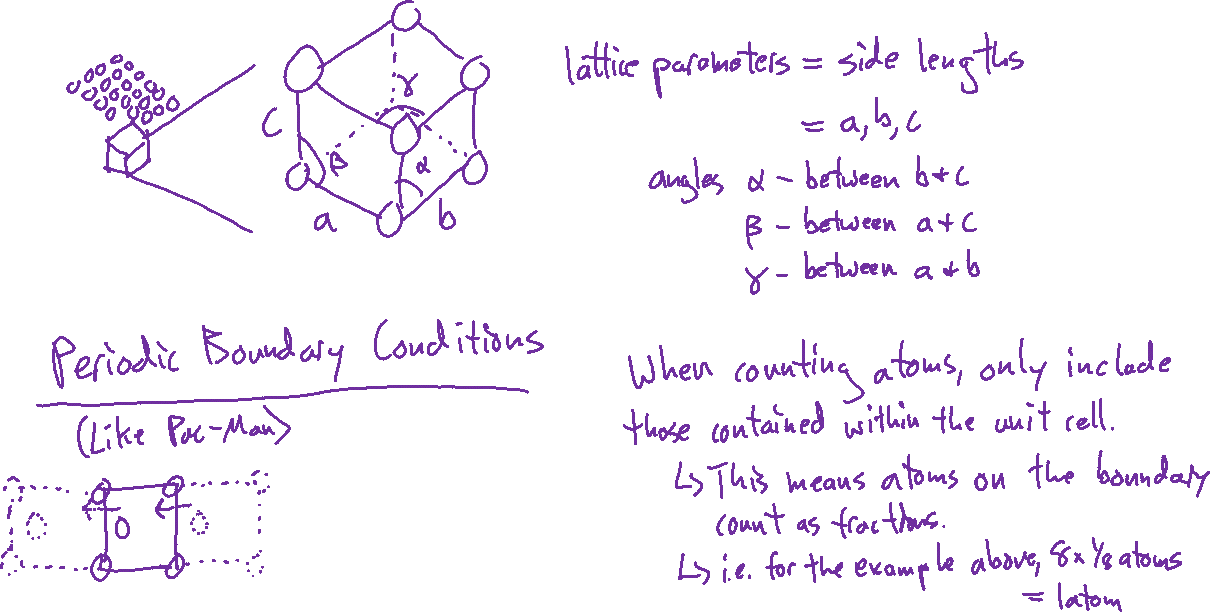 lattice parameters = side lengths
= a, b, c
angles α - between b + c
β - between a + c
γ - between a + b
γ
c
β
α
a
b
Periodic Boundary Conditions
(Like Pac-Man)
When counting atoms, only include
those contained within the unit cell.
↳ This means atoms on the boundary
count as fractions.
↳ i.e. for the example above, 8 x 1/8 atoms
= 1 atom